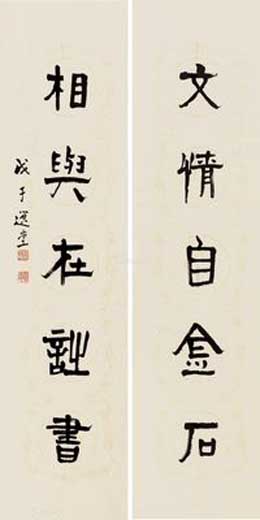 文情自金石
相與在詩書
戊子選堂